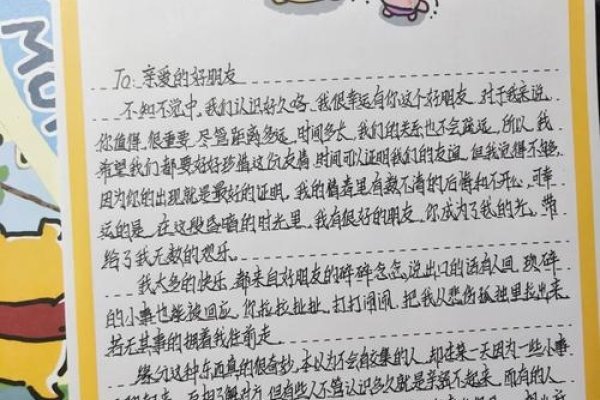 MO
To: 亲爱的好朋友
不知不觉中,我们认识好久咯,我很幸运有你这个好朋友,对于我来说,
你值得,很重要,尽管距离多远,时间多长,我们的关系也不会疏远,所以,我
希望我们都要好好珍惜这份友情,时间可以证明我们的友谊,但我觉得不够,
因为你的出现就是最好的证明,我的情绪里有数不清的后悔和不开心,可幸
运的是,在这段昏暗的时光里,我有很好的朋友,你成为了我的光,带
给了我无数的欢乐。
我太多的快乐,都来自好朋友的碎碎念念,说出口的话有人回,琐碎
的小事也能被回应,你拉拉扯扯,打打闹闹,把我从悲伤孤独里拉出来,
若无其事的拥着我往前走
缘分这种东西真的很奇妙,本以为不会有交集的人,却在某一天因为一些小事
起来,互相了解对方,但有些人不管认识多久就是亲密不起来,而有的人